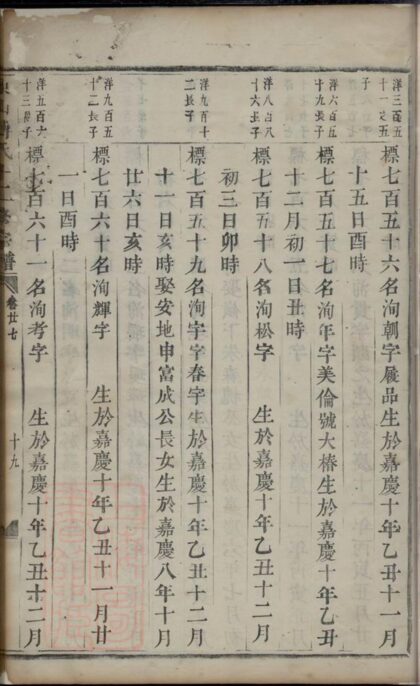 洋三百五
十一長五
子
標七百五十六名洵朝字履品生於嘉慶十年乙丑十一月
十五日酉時
洋六百五
十九長子
標七百五十七名洵年字美倫號大椿生於嘉慶十年乙丑
十二月初一日丑時
洋八百八
十六長子
標七百五十八名洵松字 生於嘉慶十年乙丑十二月
初三日卯時
洋九百十
二長子
標七百五十九名洵宇字春字生於嘉慶十年乙丑十二月
十一日亥時娶安地申富成公長女生於嘉慶八年十月
廿六日亥時
洋九百五
十二長子
標七百六十名洵輝字 生於嘉慶十年乙丑十一月廿
一日酉時
洋五百六
十三長子
標七百六十一名洵考字 生於嘉慶十年乙丑十二月
譜
卷廿七
十九